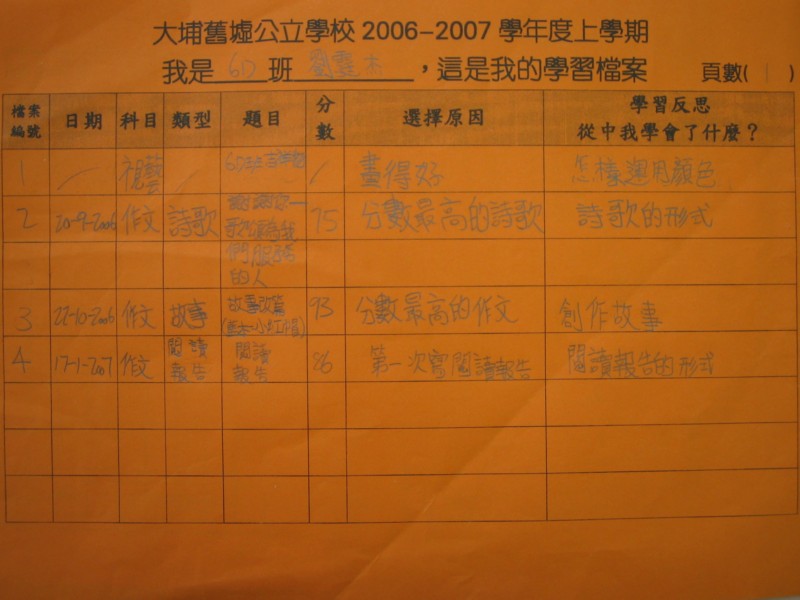 大埔舊墟公立學校 2006-2007 學年度上學期
我是 6D 班 劉 木 ，這是我的學習檔案 頁數( 1 )
檔案編號 日期 科目 類型 題目 分數 選擇原因 學習反思 從中我學會了什麼？
1 / 視藝 / 6D班吉祥物 / 畫得好 怎樣運用顏色
2 20-9-2006 作文 詩歌 謝謝你— 75 分數最高的詩歌 詩歌的形式
為我
們服務
的人
3 22-10-2006 作文 故事 故事改寫 93 分數最高的作文 創作故事
小紅帽)
4 17-1-2007 作文 閱讀報告 閱讀報告 86 第一次寫閱讀報告 閱讀報告的形式